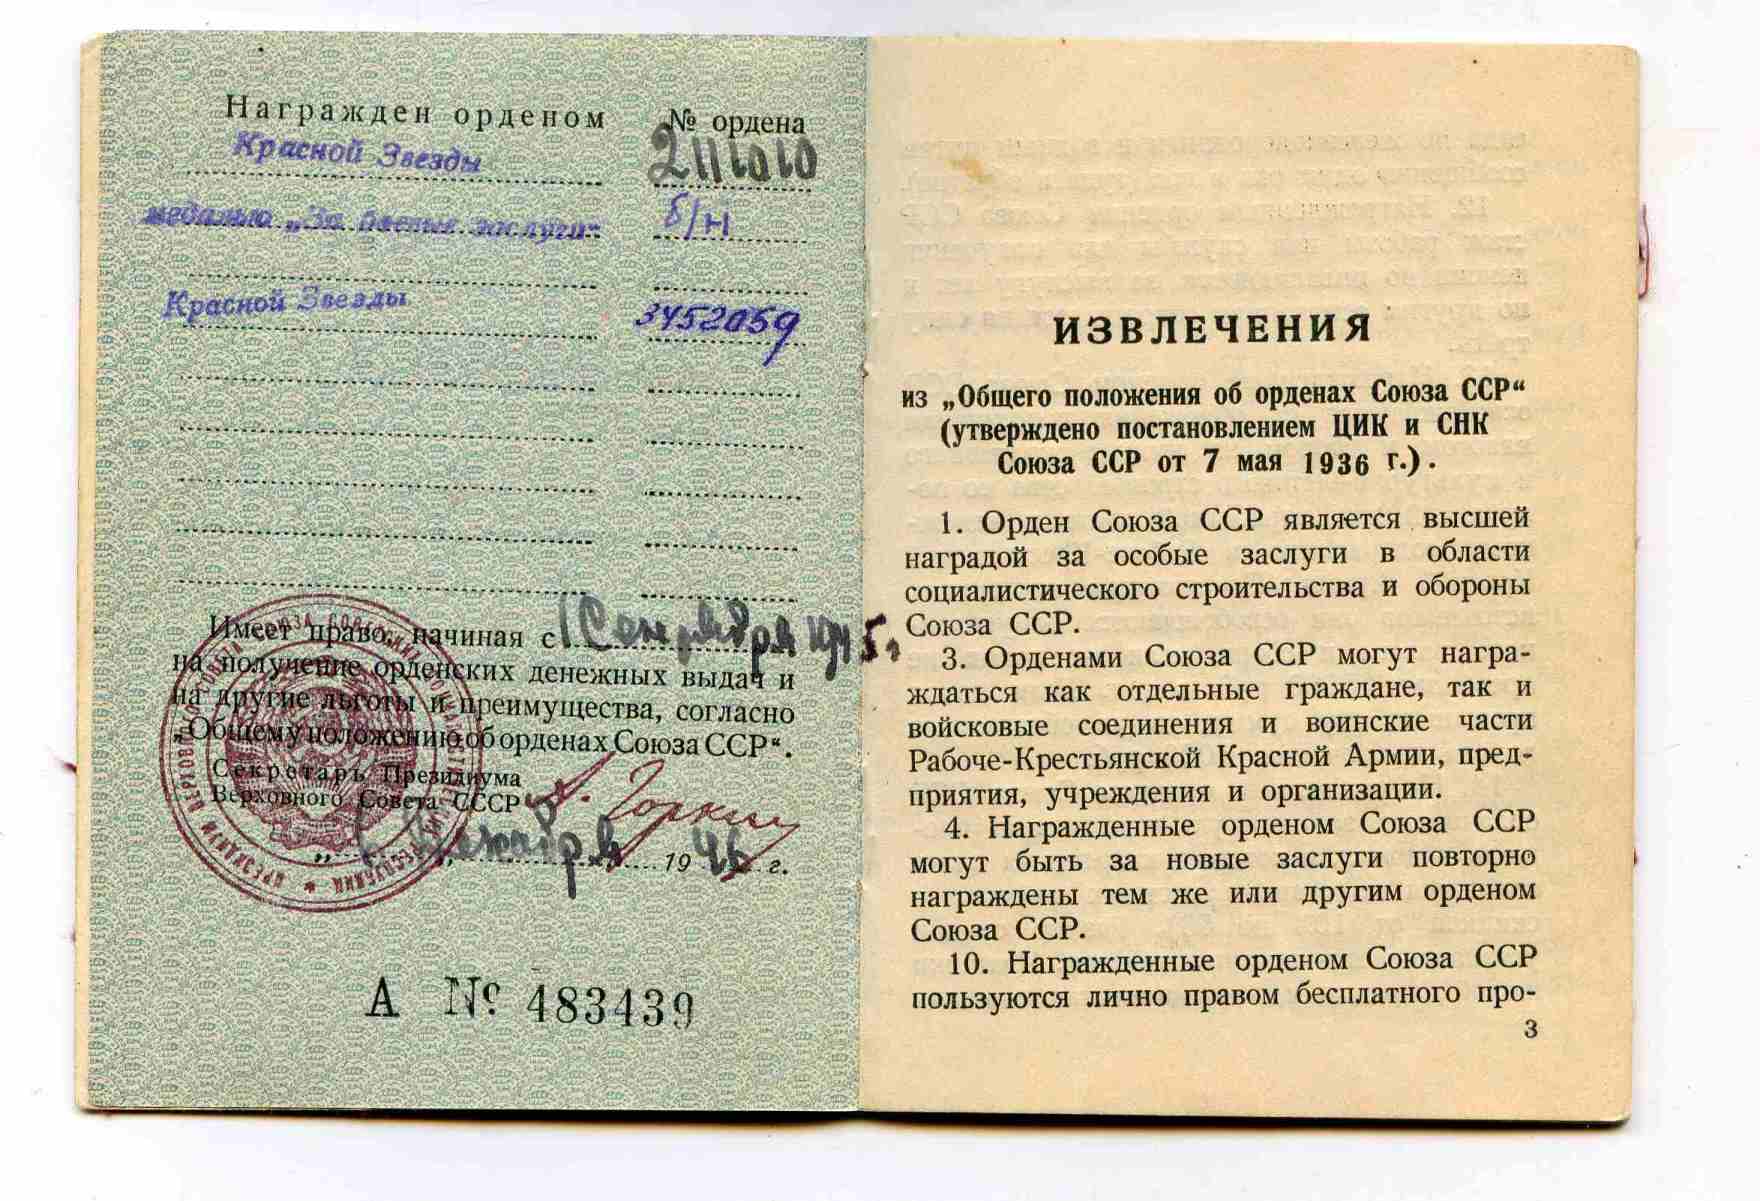 Награжден орденом № ордена
Красной Звезды 2111010
медалью „За боевые заслуги“ б/н
Красной Звезды 3452059
Имеет право, начиная с 1 Сентября 1945 г
на получение орденских денежных выдач и
на другие льготы и преимущества, согласно
„Общему положению об орденах Союза ССР“.
Секретарь Президиума
Верховного Совета СССР А. Горкин
„ “ Декабря 1946 г.
А № 483439
ИЗВЛЕЧЕНИЯ
из „Общего положения об орденах Союза ССР“
(утверждено постановлением ЦИК и СНК
Союза ССР от 7 мая 1936 г.).
1. Орден Союза ССР является высшей
наградой за особые заслуги в области
социалистического строительства и обороны
Союза ССР.
3. Орденами Союза ССР могут награ-
ждаться как отдельные граждане, так и
войсковые соединения и воинские части
Рабоче-Крестьянской Красной Армии, пред-
приятия, учреждения и организации.
4. Награжденные орденом Союза ССР
могут быть за новые заслуги повторно
награждены тем же или другим орденом
Союза ССР.
10. Награжденные орденом Союза ССР
пользуются лично правом бесплатного про-
3